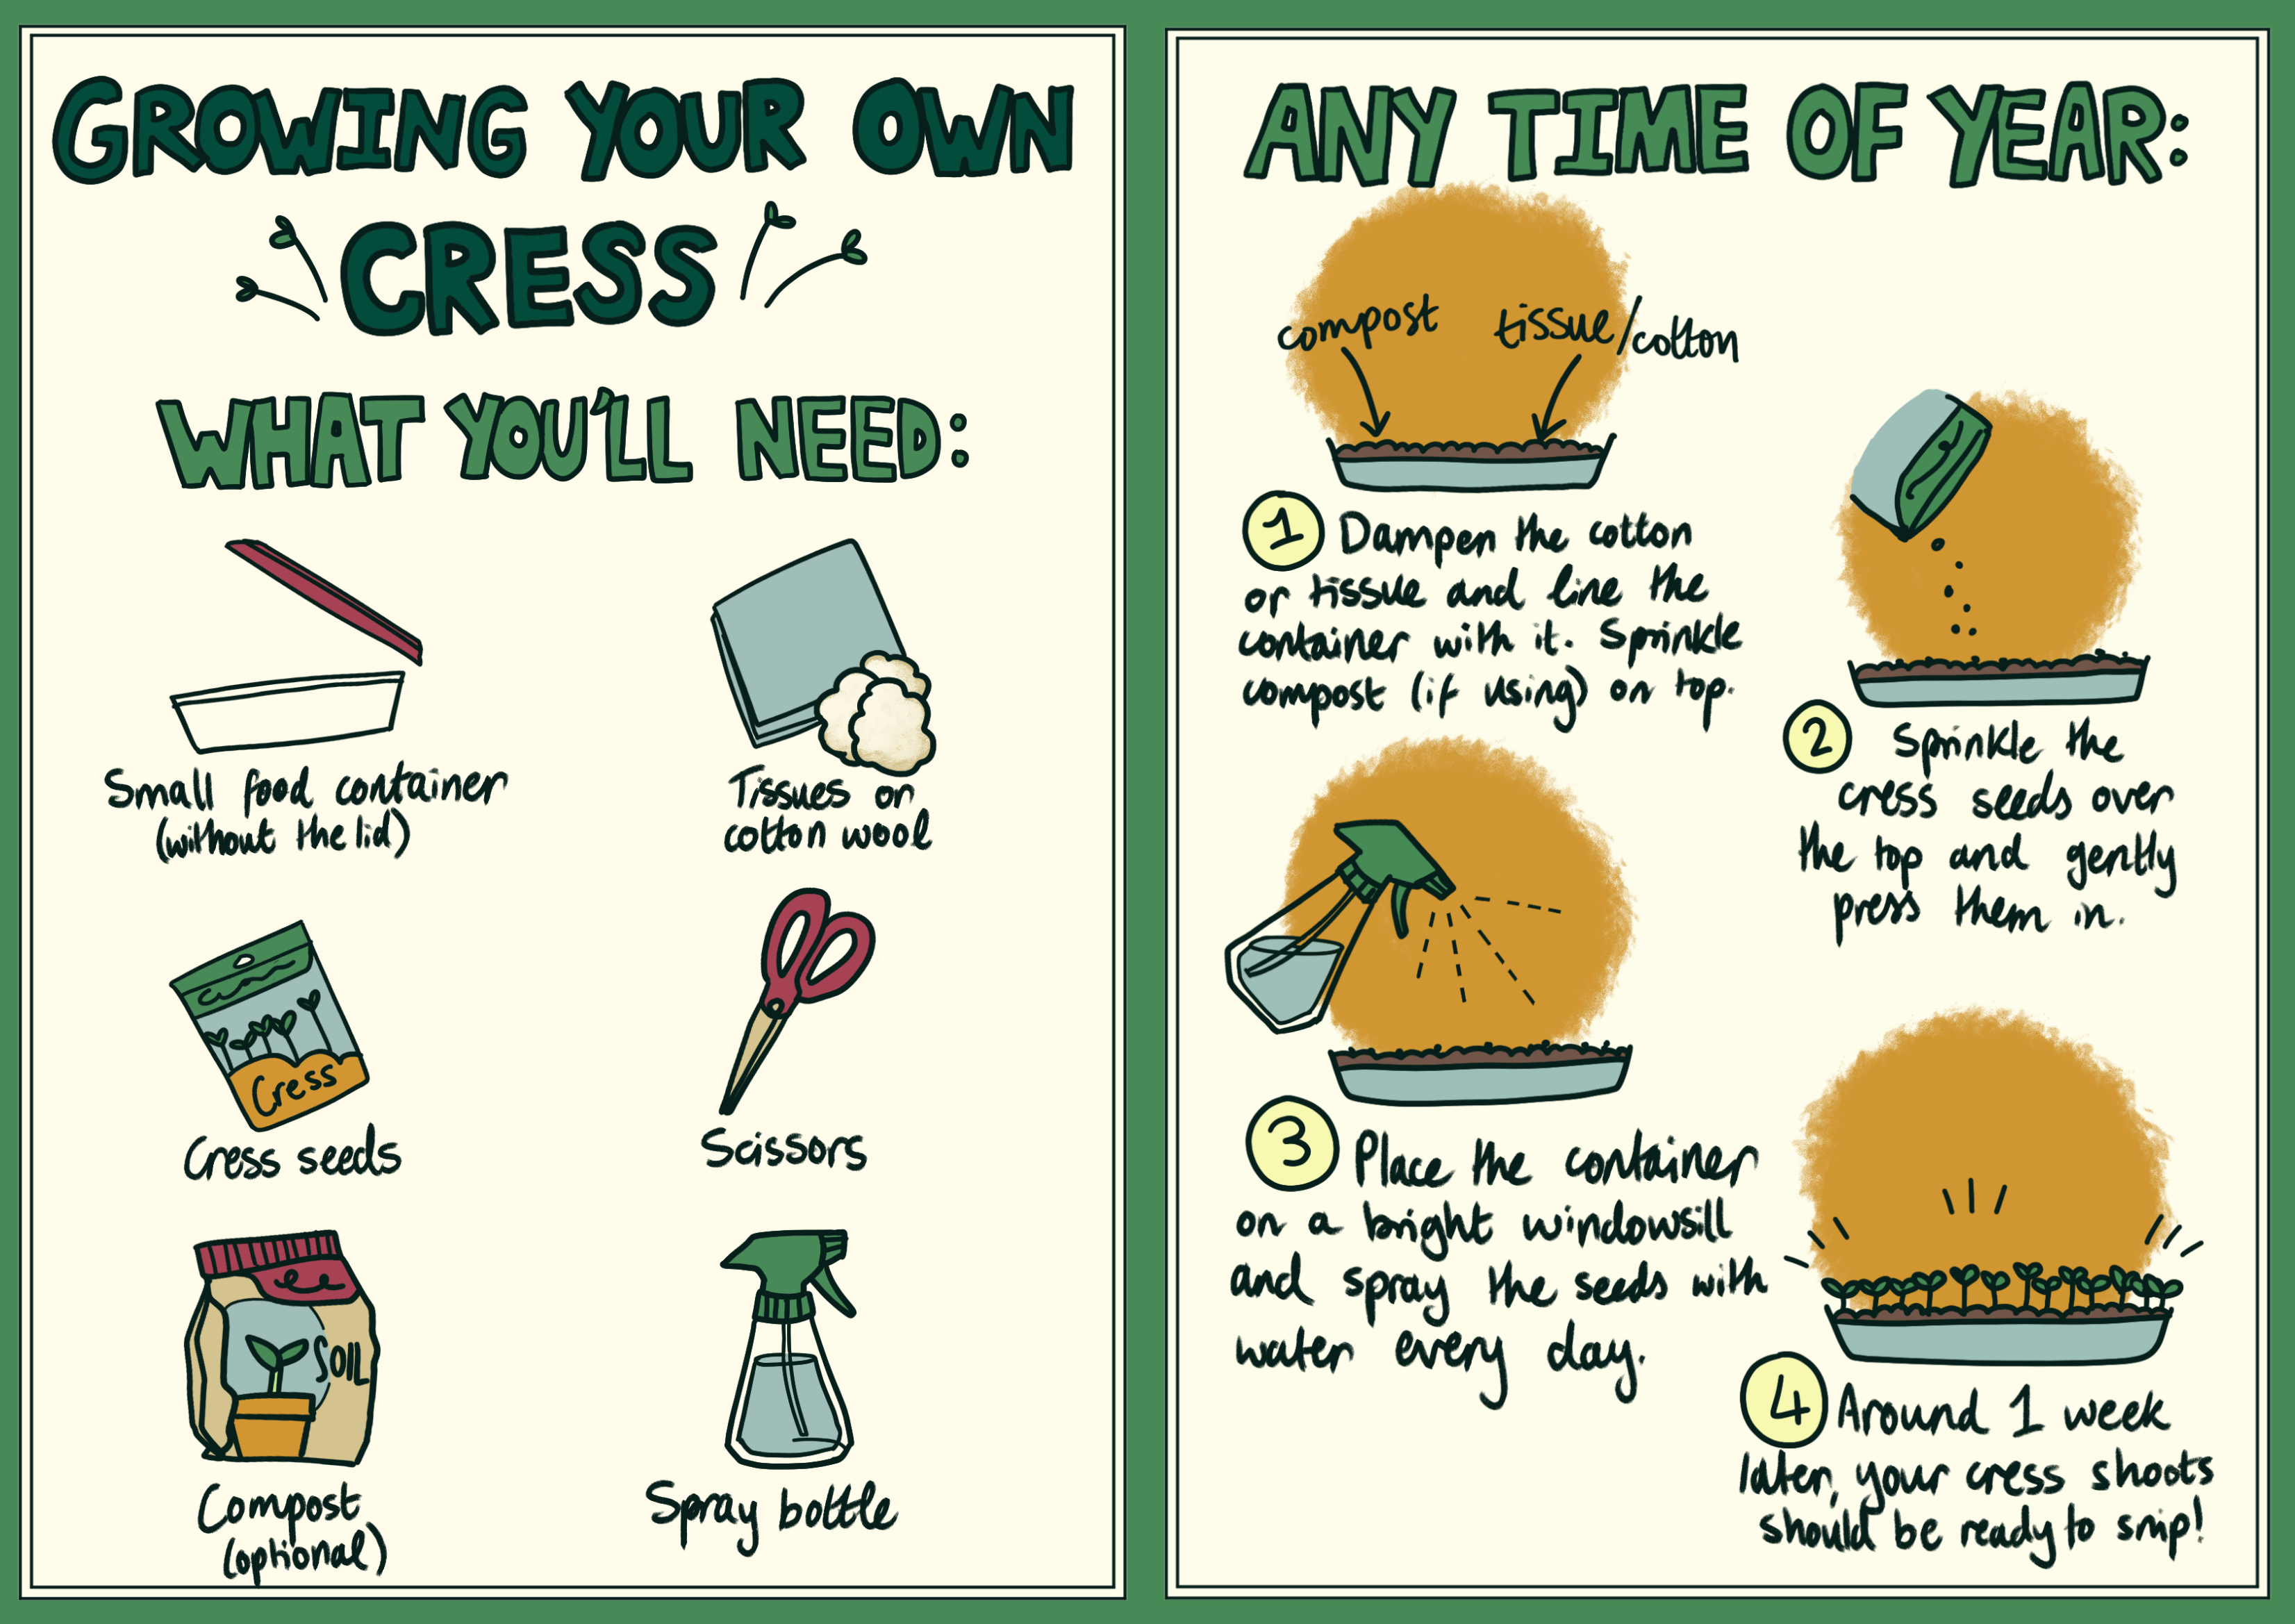 GROWING YOUR OWN
CRESS
WHAT YOU'LL NEED:
Small food container
(without the lid)
Tissues or
cotton wool
Cress
Cress seeds
Scissors
SOIL
Compost
(optional)
Spray bottle
ANY TIME OF YEAR:
compost
tissue/cotton
1 Dampen the cotton
or tissue and line the
container with it. Sprinkle
compost (if using) on top.
2 Sprinkle the
cress seeds over
the top and gently
press them in.
3 Place the container
on a bright windowsill
and spray the seeds with
water every day.
4 Around 1 week
later, your cress shoots
should be ready to snip!